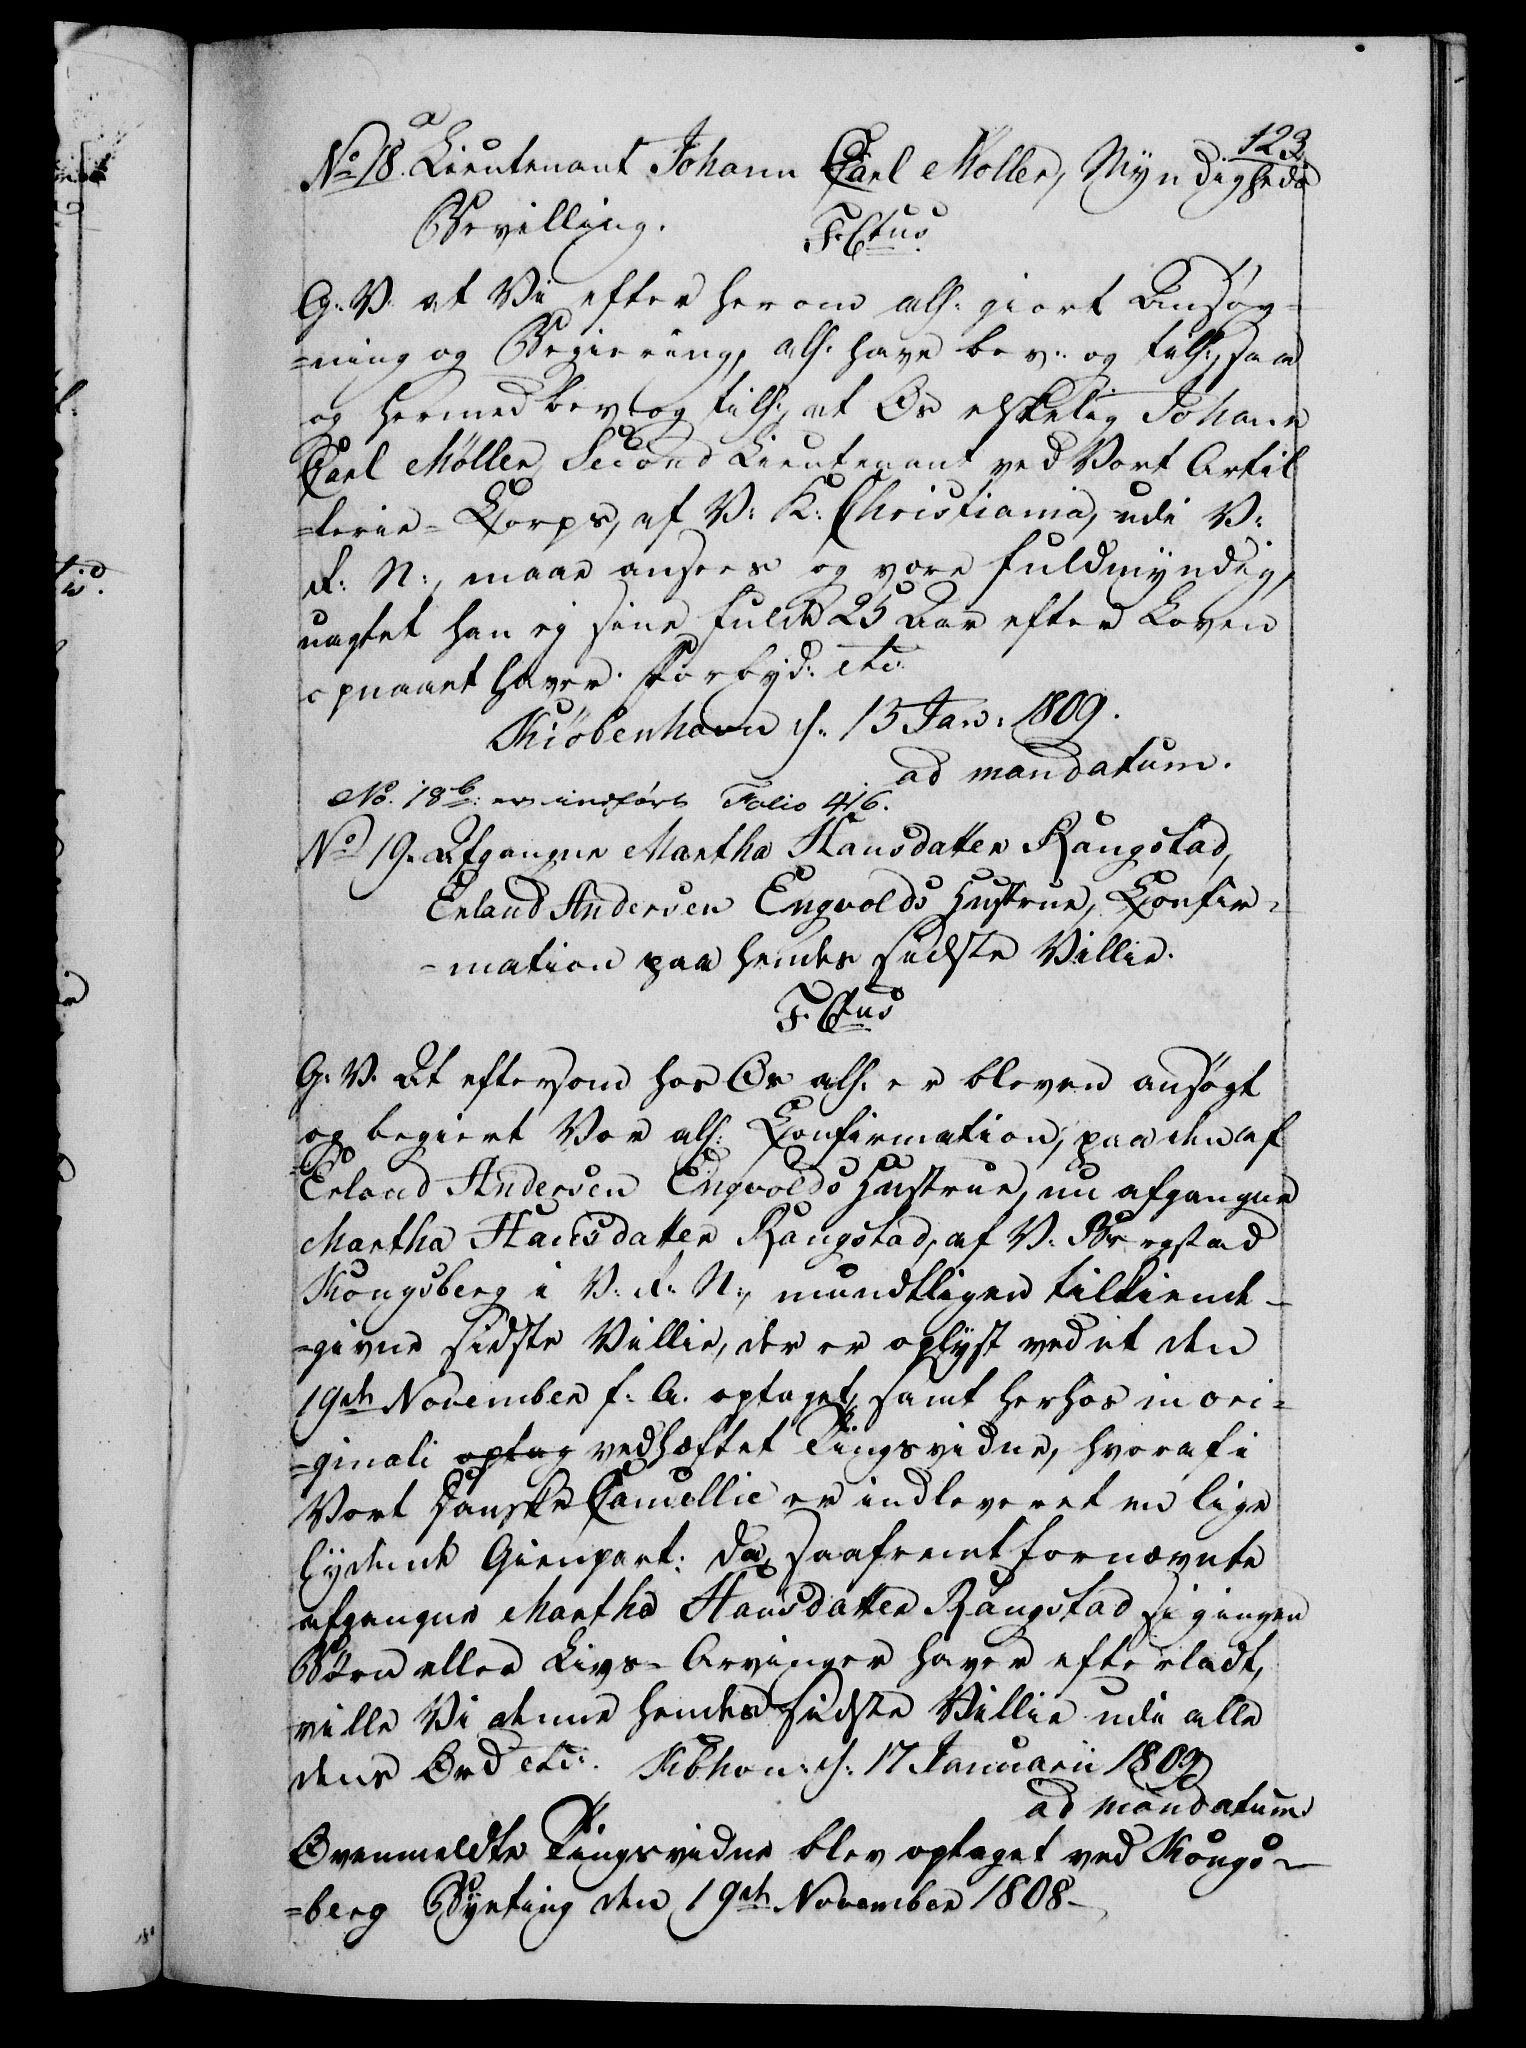 123.
No 18.a Lieutenant Johann Carl Møller, Myndigheds
Bevilling.
F. 6tus
G: V. at Vi efter herom als: giort Ansøg-
=ning og Begiering, als: have bev: og tils:, saa
og hermed bev: og tils:, at Os elskelig Johann
Carl Møller, Second Lieutenant ved Vort Artil
=lerie=Corps, af V: K: Christiania, udi V:
R: N:, maae ansees og være fuldmyndig,
uagtet han ej sine fulde 25 Aar efter Loven
opnaaet haver. Forbyd: etc:
Kiöbenhavn d: 13 Jan: 1809.
ad mandatum.
No. 18b: er indført Folio 416.
No 19. Afgangne Martha Hansdatter Rangstad,
Erland Andersen Engvolds Hustrue, Confir=
=mation paa hendes sidste Villie.
F. 6tus
G: V. At eftersom hos Os als: er bleven ansøgt
og begiert Vor als: Confirmation, paa den af
Erland Andersen Engvolds Hustrue, nu afgangne
Martha Hansdatter Rangstad, af V. Bergstad
Kongsberg i V: R: N:, mundtligen tilkiende-
=givne sidste Villie, der er oplyst ved et den
19de November f: A. optaget, samt herhos in ori=
=ginali optag vedhæftet Tingsvidne, hvoraf i
Vort Danske Cancellie er indleveret en lige
lydende Gienpart: Da, saafremt fornævnte
afgangne Martha Hansdatter Rangstad ei ingen
Børn eller Livs=Arvinger haver efterladt,
ville Vi denne hendes sidste Villie udi alle
dens Ord etc:. Kbhvn: d: 17 Januarii 1809
ad mandatum
Ovenmeldte Tingsvidne blev optaget ved Kongs=
=berg Byeting den 19de November 1808-